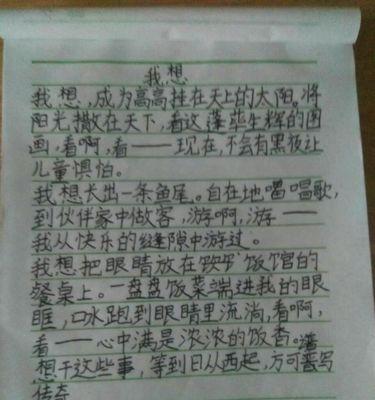 我想
我想,成为高高挂在天上的太阳。将
阳光撒在天下,看这蓬荜生辉的图
画,看啊,看——现在,不会有黑夜让
儿童惧怕。
我想长出一条鱼尾。自在地唱唱歌,
到伙伴家中做客,游啊,游——
我从快乐的缝隙中游过。
我想把眼睛放在饭馆的
餐桌上。一盘盘饭菜端进我的眼
眶,口水跑到眼睛里流淌,看啊,
看——心中满是浓浓的饭香。
想干这些事,等到日从西起,方可谱写
传奇